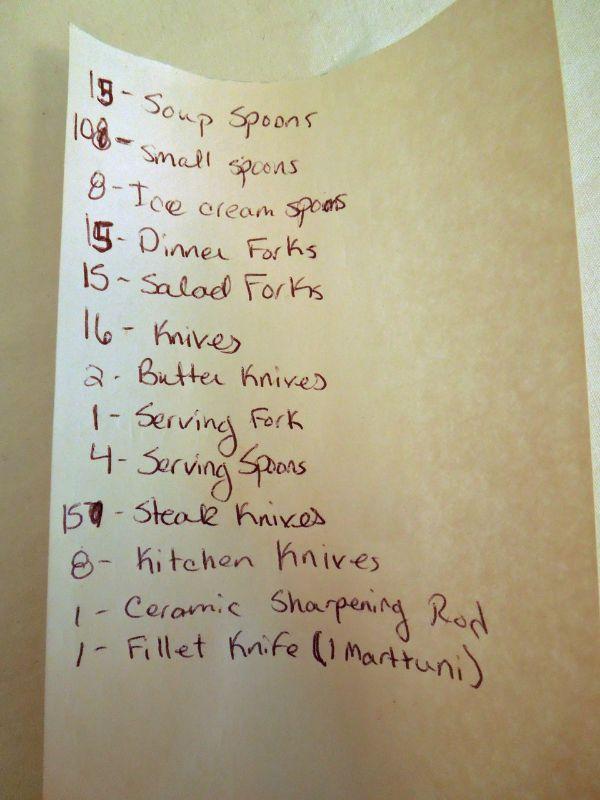 15 - Soup Spoons
- Small spoons
8 - Ice cream spoons
15 - Dinner Forks
15 - Salad Forks
16 - Knives
2 - Butter Knives
1 - Serving Fork
4 - Serving Spoons
- Steak Knives
8 - Kitchen Knives
1 - Ceramic Sharpening Rod
1 - Fillet Knife (1 Marttuni)